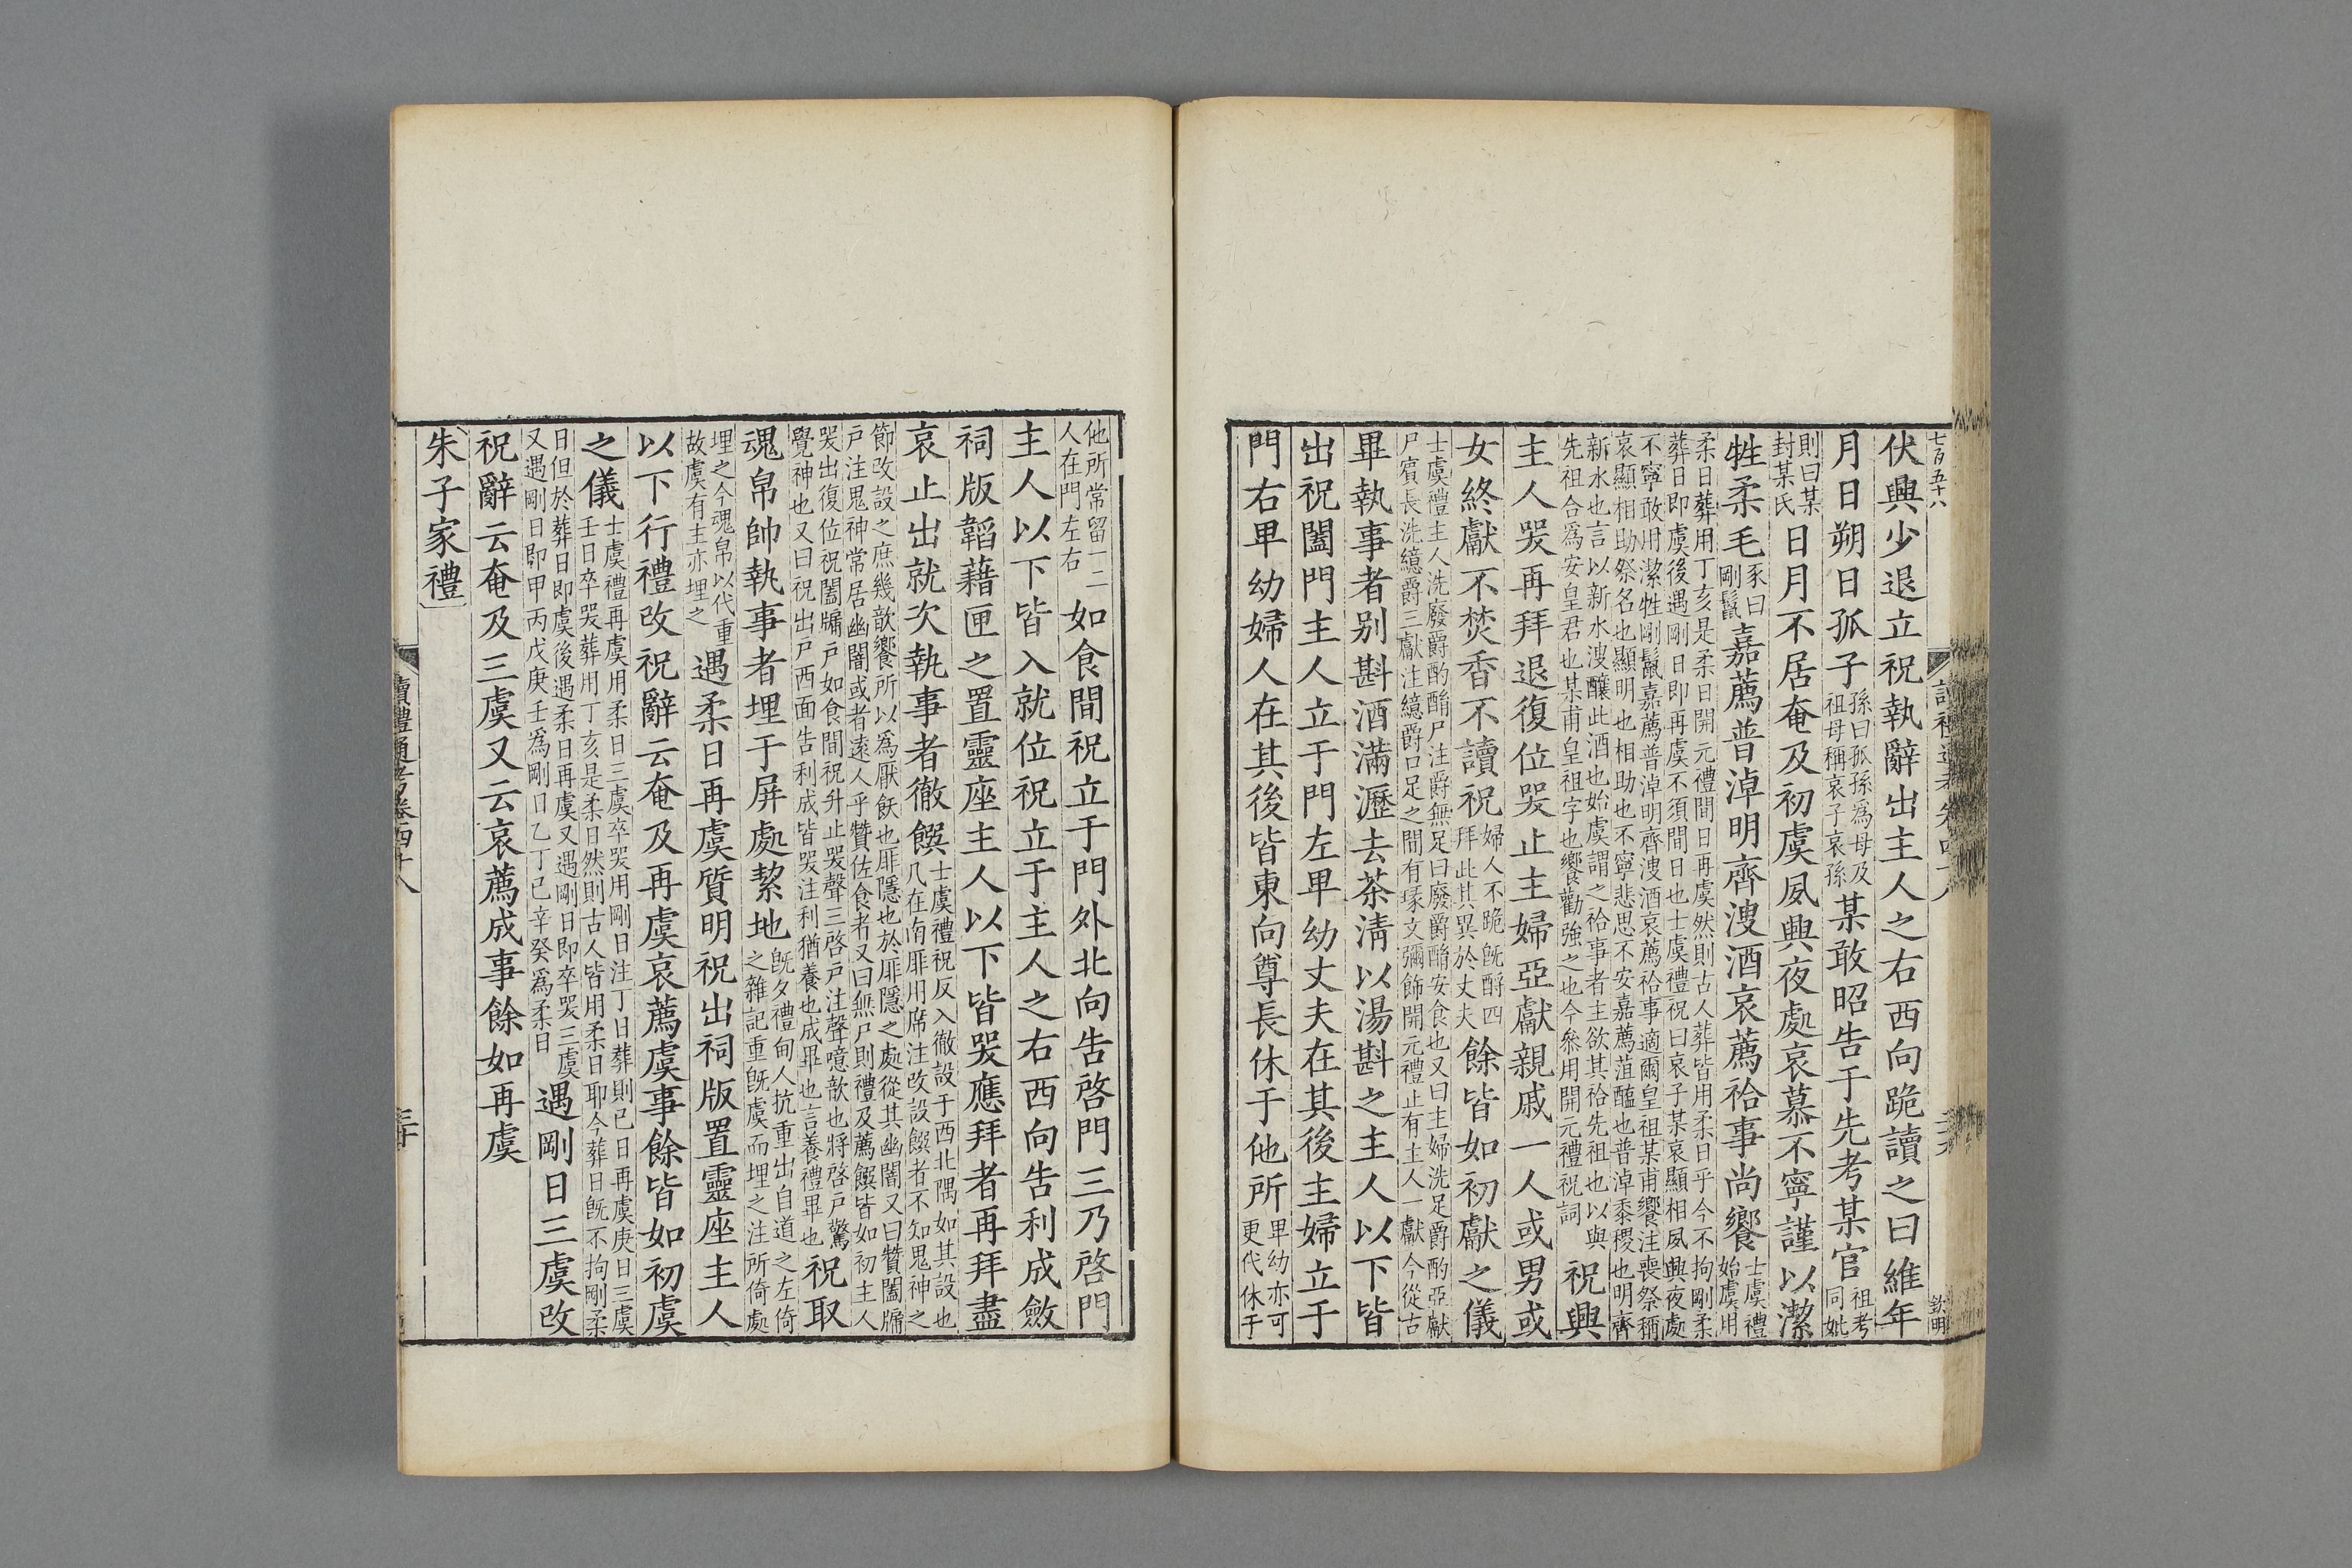 七百五十八
欽明
伏興少退立祝執辭出主人之右西向跪讀之曰維年
月日朔日孤子孫曰孤孫爲母及祖母稱哀子哀孫某敢昭告于先考某官祖考同妣
則曰某封某氏日月不居奄及初虞夙興夜處哀慕不寧謹以潔
牲柔毛豕曰剛鬣嘉薦普淖明齊溲酒哀薦祫事尚饗士虞禮始虞用
柔日葬用丁亥是柔日開元禮間日再虞然則古人葬皆用柔日乎今不拘剛柔
葬日即虞後遇剛日即再虞不須間日也士虞禮祝曰哀子某哀顯相夙興夜處
不寧敢用潔牲剛鬣嘉薦普淖明齊溲酒哀薦祫事適爾皇祖某甫饗注喪祭稱
哀顯相助祭名也顯明也相助也不寧悲思不安嘉薦菹醢也普淖黍稷也明齊
新水也言以新水溲釀此酒也始虞謂之祫事者主欲其祫先祖也以與
先祖合爲安皇君也某甫皇祖字也饗勸強之也今叅用開元禮祝詞祝興
主人哭再拜退復位哭止主婦亞獻親戚一人或男或
女終獻不焚香不讀祝婦人不跪旣酹四拜此其異於丈夫餘皆如初獻之儀
士虞禮主人洗廢爵酌酳尸注爵無足曰廢爵酳安食也又曰主婦洗足爵酌亞獻
尸賓長洗繶爵三獻注繶爵口足之間有瑑文彌飾開元禮止有主人一獻今從古
畢執事者别斟酒滿瀝去茶清以湯斟之主人以下皆
出祝闔門主人立于門左卑幼丈夫在其後主婦立于
門右卑幼婦人在其後皆東向尊長休于他所卑幼亦可更代休于
他所常留一二人在門左右如食間祝立于門外北向告啓門三乃啓門
主人以下皆入就位祝立于主人之右西向告利成斂
祠版韜藉匣之置靈座主人以下皆哭應拜者再拜盡
哀止出就次執事者徹饌士虞禮祝反入徹設于西北隅如其設也几在南厞用席注改設饌者不知鬼神之
節改設之庶幾歆饗所以爲厭飫也厞隱也於厞隱之處從其幽闇又曰贊闔牖
戸注鬼神常居幽闇或者遠人乎贊佐食者又曰無尸則禮及薦饌皆如初主人
哭出復位祝闔牖戸如食間祝升止哭聲三啓戸注聲噫歆也將啓戸驚
覺神也又曰祝出戸西面告利成皆哭注利猶養也成畢也言養禮畢也祝取
魂帛帥執事者埋于屏處㓗地旣夕禮甸人抗重出自道之左倚之雜記重旣虞而埋之注所倚處
埋之今魂帛以代重故虞有主亦埋之遇柔日再虞質明祝出祠版置靈座主人
以下行禮改祝辭云奄及再虞哀薦虞事餘皆如初虞
之儀士虞禮再虞用柔日三虞卒哭用剛日注丁日葬則已日再虞庚日三虞壬日卒哭葬用丁亥是柔日然則古人皆用柔日耶今葬日旣不拘剛柔
日但於葬日即虞後遇柔日再虞又遇剛日即卒哭三虞又遇剛日即甲丙戊庚壬爲剛日乙丁已辛癸爲柔日遇剛日三虞改
祝辭云奄及三虞又云哀薦成事餘如再虞
朱子家禮
讀禮通考卷四十八
三十